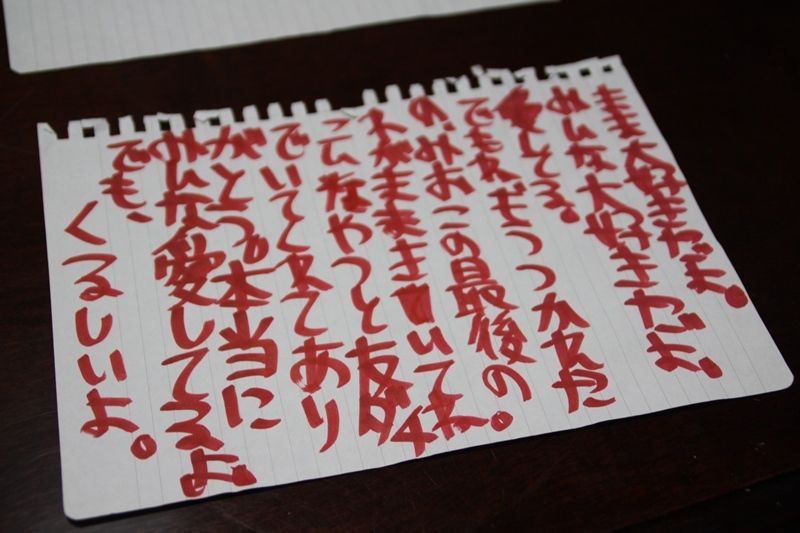 ままま大好きだよ。
みんな大好きだよ。
愛してる。
でもね、ぞうつかれた
の。みおこの最後の。
ネがままきいてね。
こんなやつと友ダチ
でいてくれてあり
がとう。本当に
みんな愛してるよ
でも、
くるしいよ。